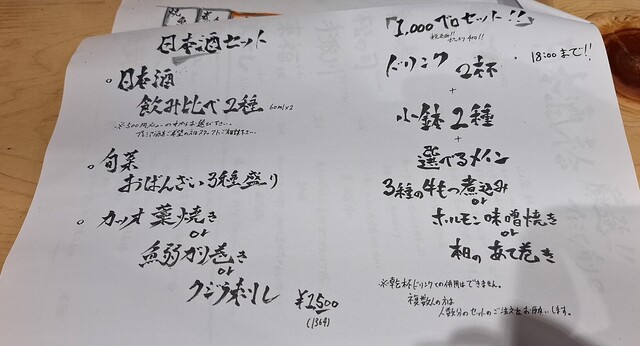 日本酒セット
○日本酒
飲み比べ2種 60ml×2
※500円メニューの中からお選び下さい。
○旬菜
おばんざい3種盛り
○カツオ藁焼き
or
魚弱ガリ巻き
or
クジラ刺し
¥1500
(1364)
1,000ベロセット!!
ドリンク2杯
・18:00まで!!
+
小鉢2種
+
選べるメイン
3種の牛もつ煮込み
or
ホルモン味噌焼き
or
相のあて巻き
※乾杯ドリンクとの併用はできません。
複数人の方は
人数分のセットのご注文をお願いします。